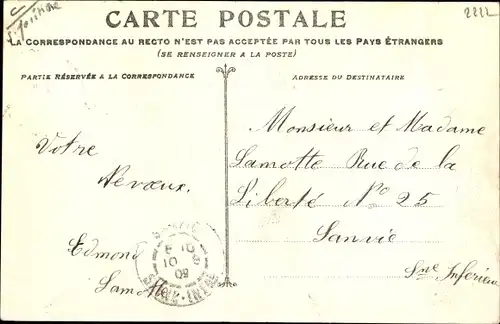 CARTE POSTALE
2222
LA CORRESPONDANCE AU RECTO N'EST PAS ACCEPTÉE PAR TOUS LES PAYS ÉTRANGERS
(SE RENSEIGNER A LA POSTE)
PARTIE RÉSERVÉE A LA CORRESPONDANCE
ADRESSE DU DESTINATAIRE
Votre
Neveux
Edmond
Lamotte
Monsieur et Madame
Lamotte Rue de la
Liberté No 25
Sanvic
Sne Inferieu
09